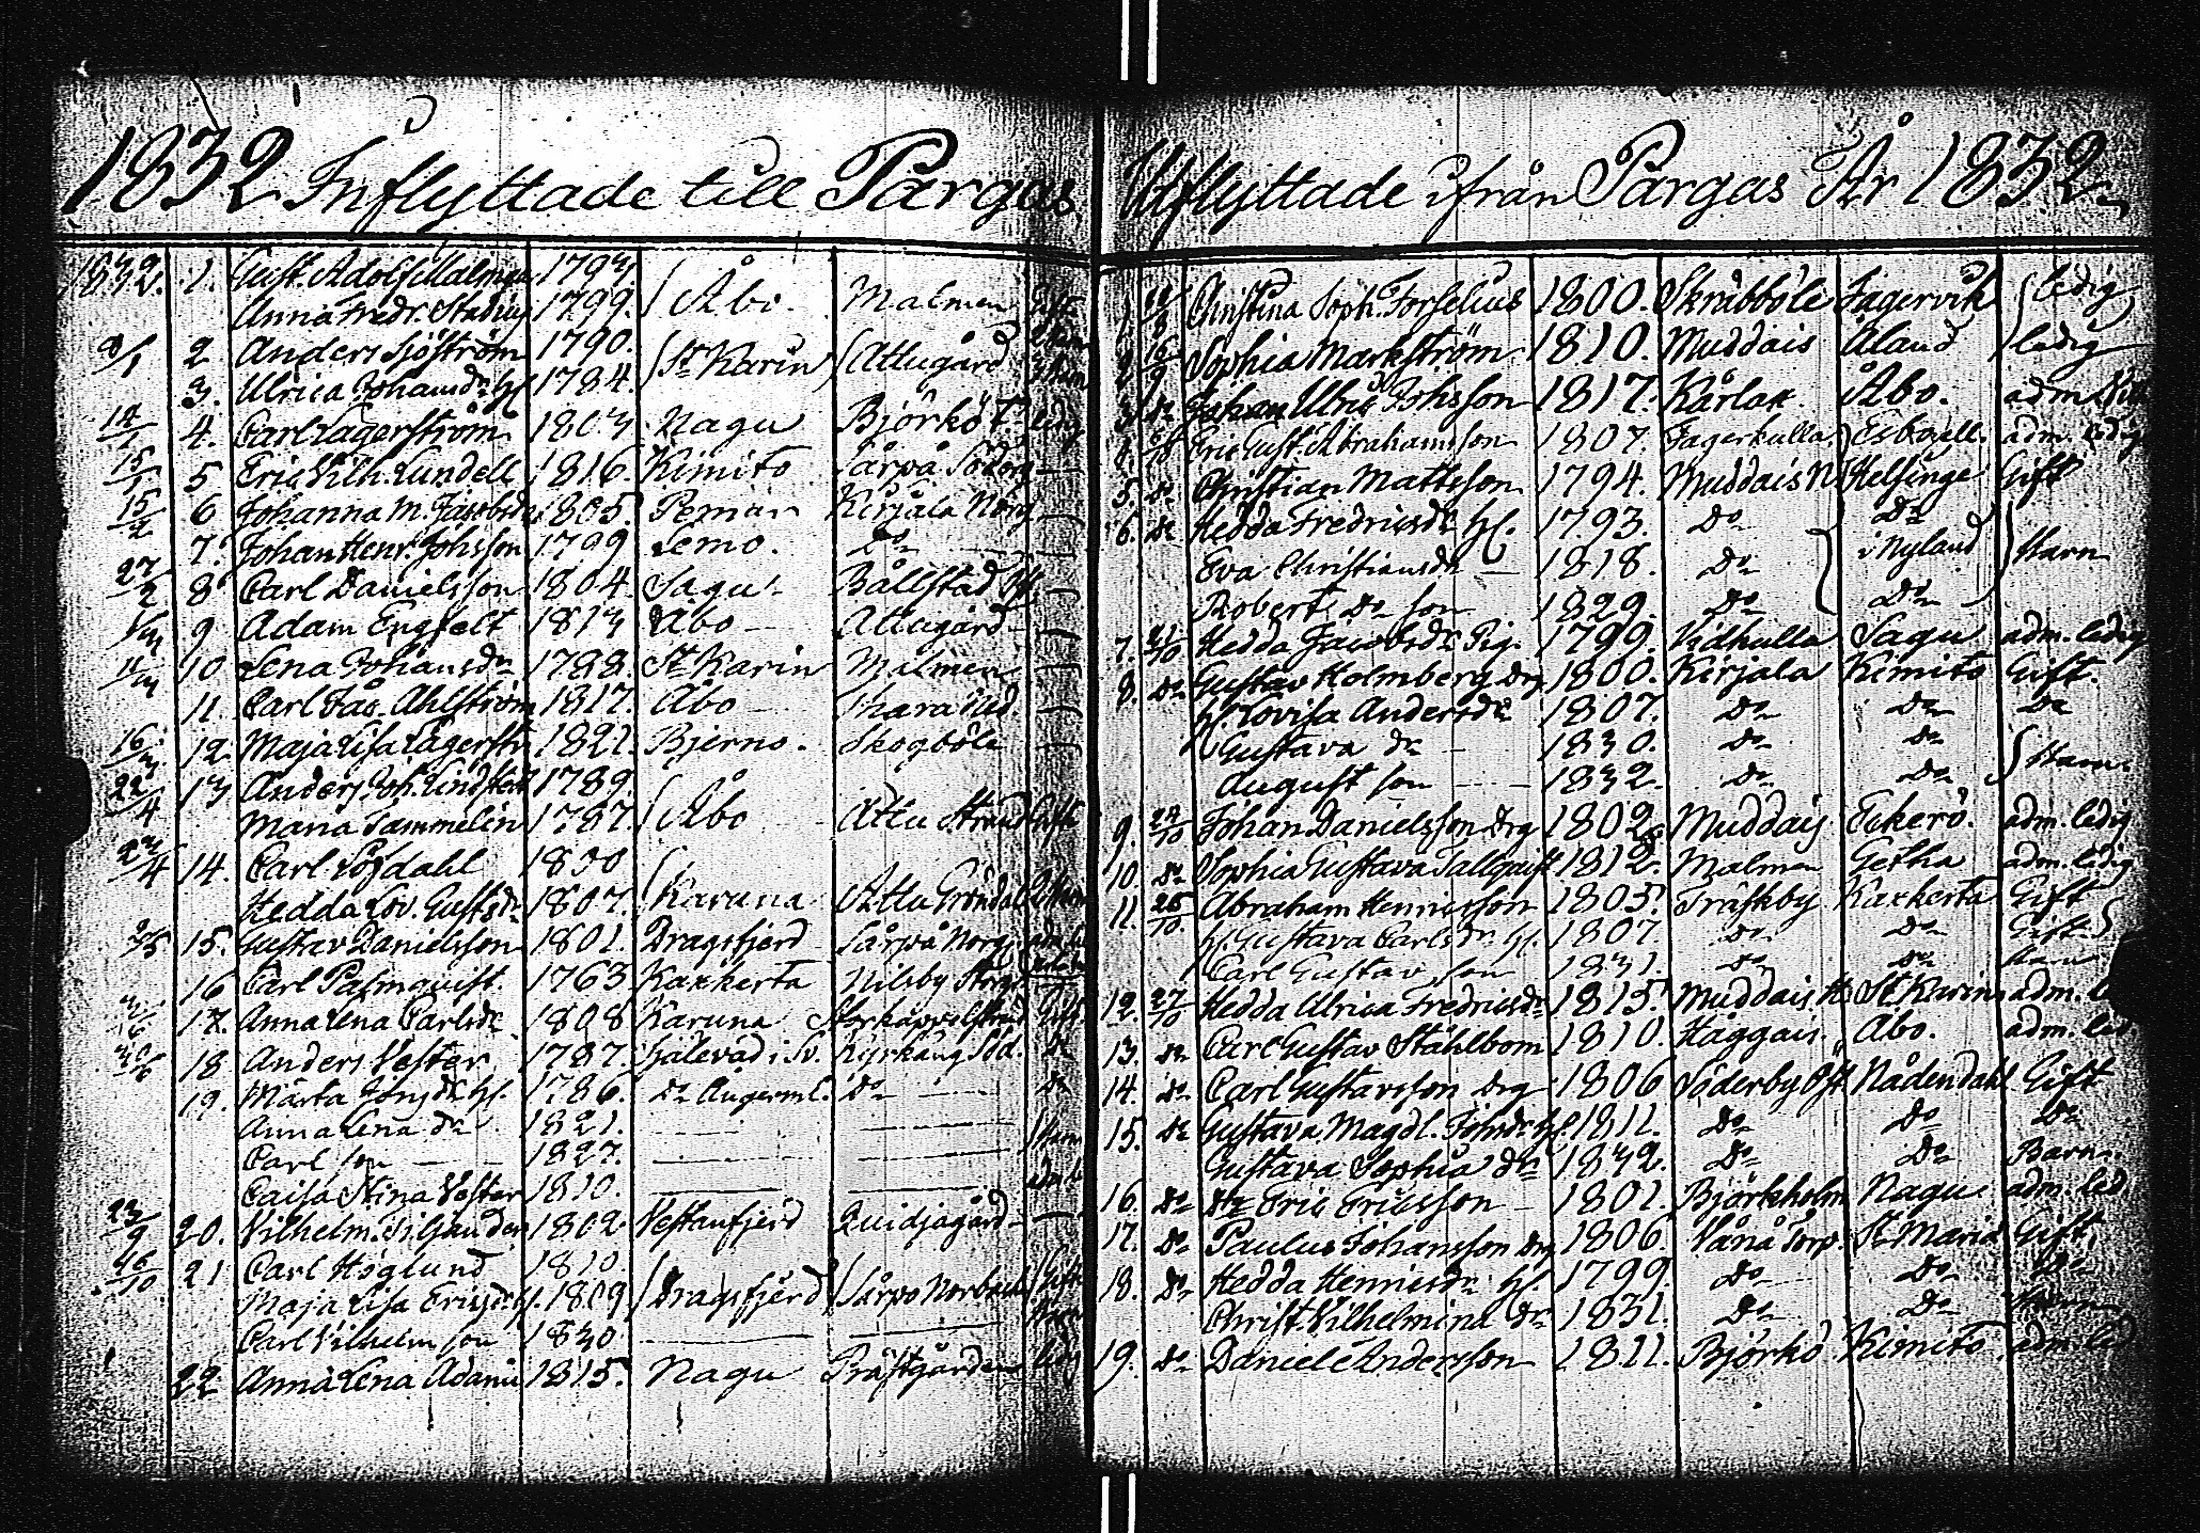 1832 Inflyttade till Pargas
1832. 1. Gust. Adolf Malmgren 1793.
Anna Fredr. Stadius 1799. Åbo. Malmen Gift
8/1 2 Anders Sjöström 1790.
3. Ulrica Johansdr hu 1784. St Karin Attugård
14/1 4. Carl Lagerström 1803 Nagu Björkö T. ledig
15/1 5 Eric Vilh. Lundell 1816. Kimito Särpå Söderg —
15/2 6 Johanna M. Jacobsdr 1805. Pemar Kirjala Norrg —
7. Johan Henr. Johsson 1799 Lemo. Do — —
27/2 8 Carl Danielsson 1804. Sagu Bällstad —
9 Adam Engfelt 1813 Åbo — Attugård —
10 Lena Johansdr 1788. St Karin Malmen —
11 Carl Jac. Ahlström 1817. Åbo — Mara Söd. —
16/3 12 Maja Lisa Lagerstr 1821. Bjerno. Skogböle —
22/4 13 Anders Joh. Lindstedt 1789.
Maria Tammelin 1787. Åbo — Attu Strand Gifte
23/4 14. Carl Löfdahl 1800
Hedda Lov. Gustsdr 1807. Karuna Attu Gröndal
15. Gustav Danielsson 1801. Dragsfjerd Särpå Norrg
16 Carl Palmqvist. 1763 Kaxkerta Nilsby Storg.
17. Anna Lena Carlsdr 1808 Karuna Storkäppelstrand Gift
18 Anders Vester 1787. Själevad i Sv. Kyrkäng Söd. Do
19. Märta Jonsdr hu. 1786. Do Ångerml. Do — Do
Anna Lena dr 1821. — — Barn
Carl son — 1827. — —
Caisa Stina Vester 1810. — —
23/9 20. Vilhelm Siljander 1802 Vestanfjerd Qvidjagård —
26/10 21 Carl Höglund 1810
Maja Lisa Ericsdr hu. 1809 Dragsfjerd Särpo Norback Gifte
Carl Vilhelm son 1830 — — Barn
22 Anna Lena Adami 1815. Nagu Prästgården ledig
Utflyttade ifrån Pargas År 1832.
1. Christina Soph. Forselius 1800. Skräbböle Fagervik ledig
2. 16/9 Sophia Markström 1810. Muddais Åland ledig
3. Do Johan Ulric Johsson 1817. Kårlax Åbo. adm.
4. Eric Gust. Abrahamsson 1807. Fagerkulla Esbo adm. ledig
5. Do Christian Mattsson 1794. Muddais N Helsinge Gift
6. Do Hedda Fredricsdr hu. 1793. Do Do
Eva Christiansdr — 1818. Do i Nyland Barn
Robert Do son 1829. Do Do
7. 21/10 Hedda Jacobsdr Pig. 1799. Vidkulla Sagu adm. ledig
8. Do Gustav Holmberg Drg 1800. Kirjala Kimito Gift.
hu. Lovisa Andersdr 1807. Do Do Do
Gustava dr — 1830. Do Do
August son — 1832. Do Do Barn.
9. 24/10 Johan Danielsson Drg 1802 Muddais Eckerö. adm. ledig
10. Do Sophia Gustava Tallqvist 1812. Malmen Getha adm. ledig
11. 26/10. Abraham Henricsson 1805. Träskby Kaxkerta Gift
hu. Gustava Carlsdr. hu. 1807. Do Do Gift
Carl Gustav son 1831. Do Do Barn
12. 27/10 Hedda Ulrica Fredricsdr 1815. Muddais St Karins adm.
13. Do Carl Gustav Ståhlbom 1810. Häggais. Åbo. adm. led
14. Do Carl Gustavsson Drg 1806 Söderby Öst. Nådendahl Gift
15. Do Gustava Magdl. Johsdr hu. 1811. Do Do Do
Gustava Sophia dr 1832. Do Do Barn.
16. Do Eric Ericsson — 1801. Björkholm Nagu adm. led
17. Do Paulus Johansson Drg 1806. Vånå Torp. St Marie Gift.
18. Do Hedda Henricsdr hu. 1799. Do Do Do
Christ. Vilhelmina dr 1831. Do Do Barn
19. Do Daniel Andersson 1811. Björkö Kimito adm. led